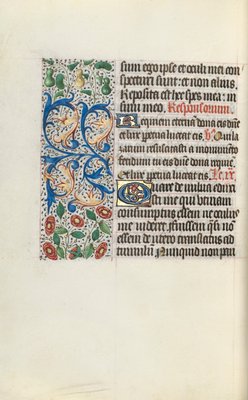 sum ego ipse et oculi mei con
specturi sunt: et non alius.
Reposita est hec spes mea: in
sinu meo. Responsorium.
Requiem eternā dona eis dñe
et lux ppetua luceat eis. v̄. Qui la
zarum resuscitasti a monumēto
fetidum tu eis dñe dona requiē.
Et lux ppetua luceat eis. Le. ix.
Quare de vulua eduxi
sti me qui utinam
consumptus essem ne oculus
me videret. fuissem q̄si non
essem de utero translatus ad
tumulū Nunquid non pau